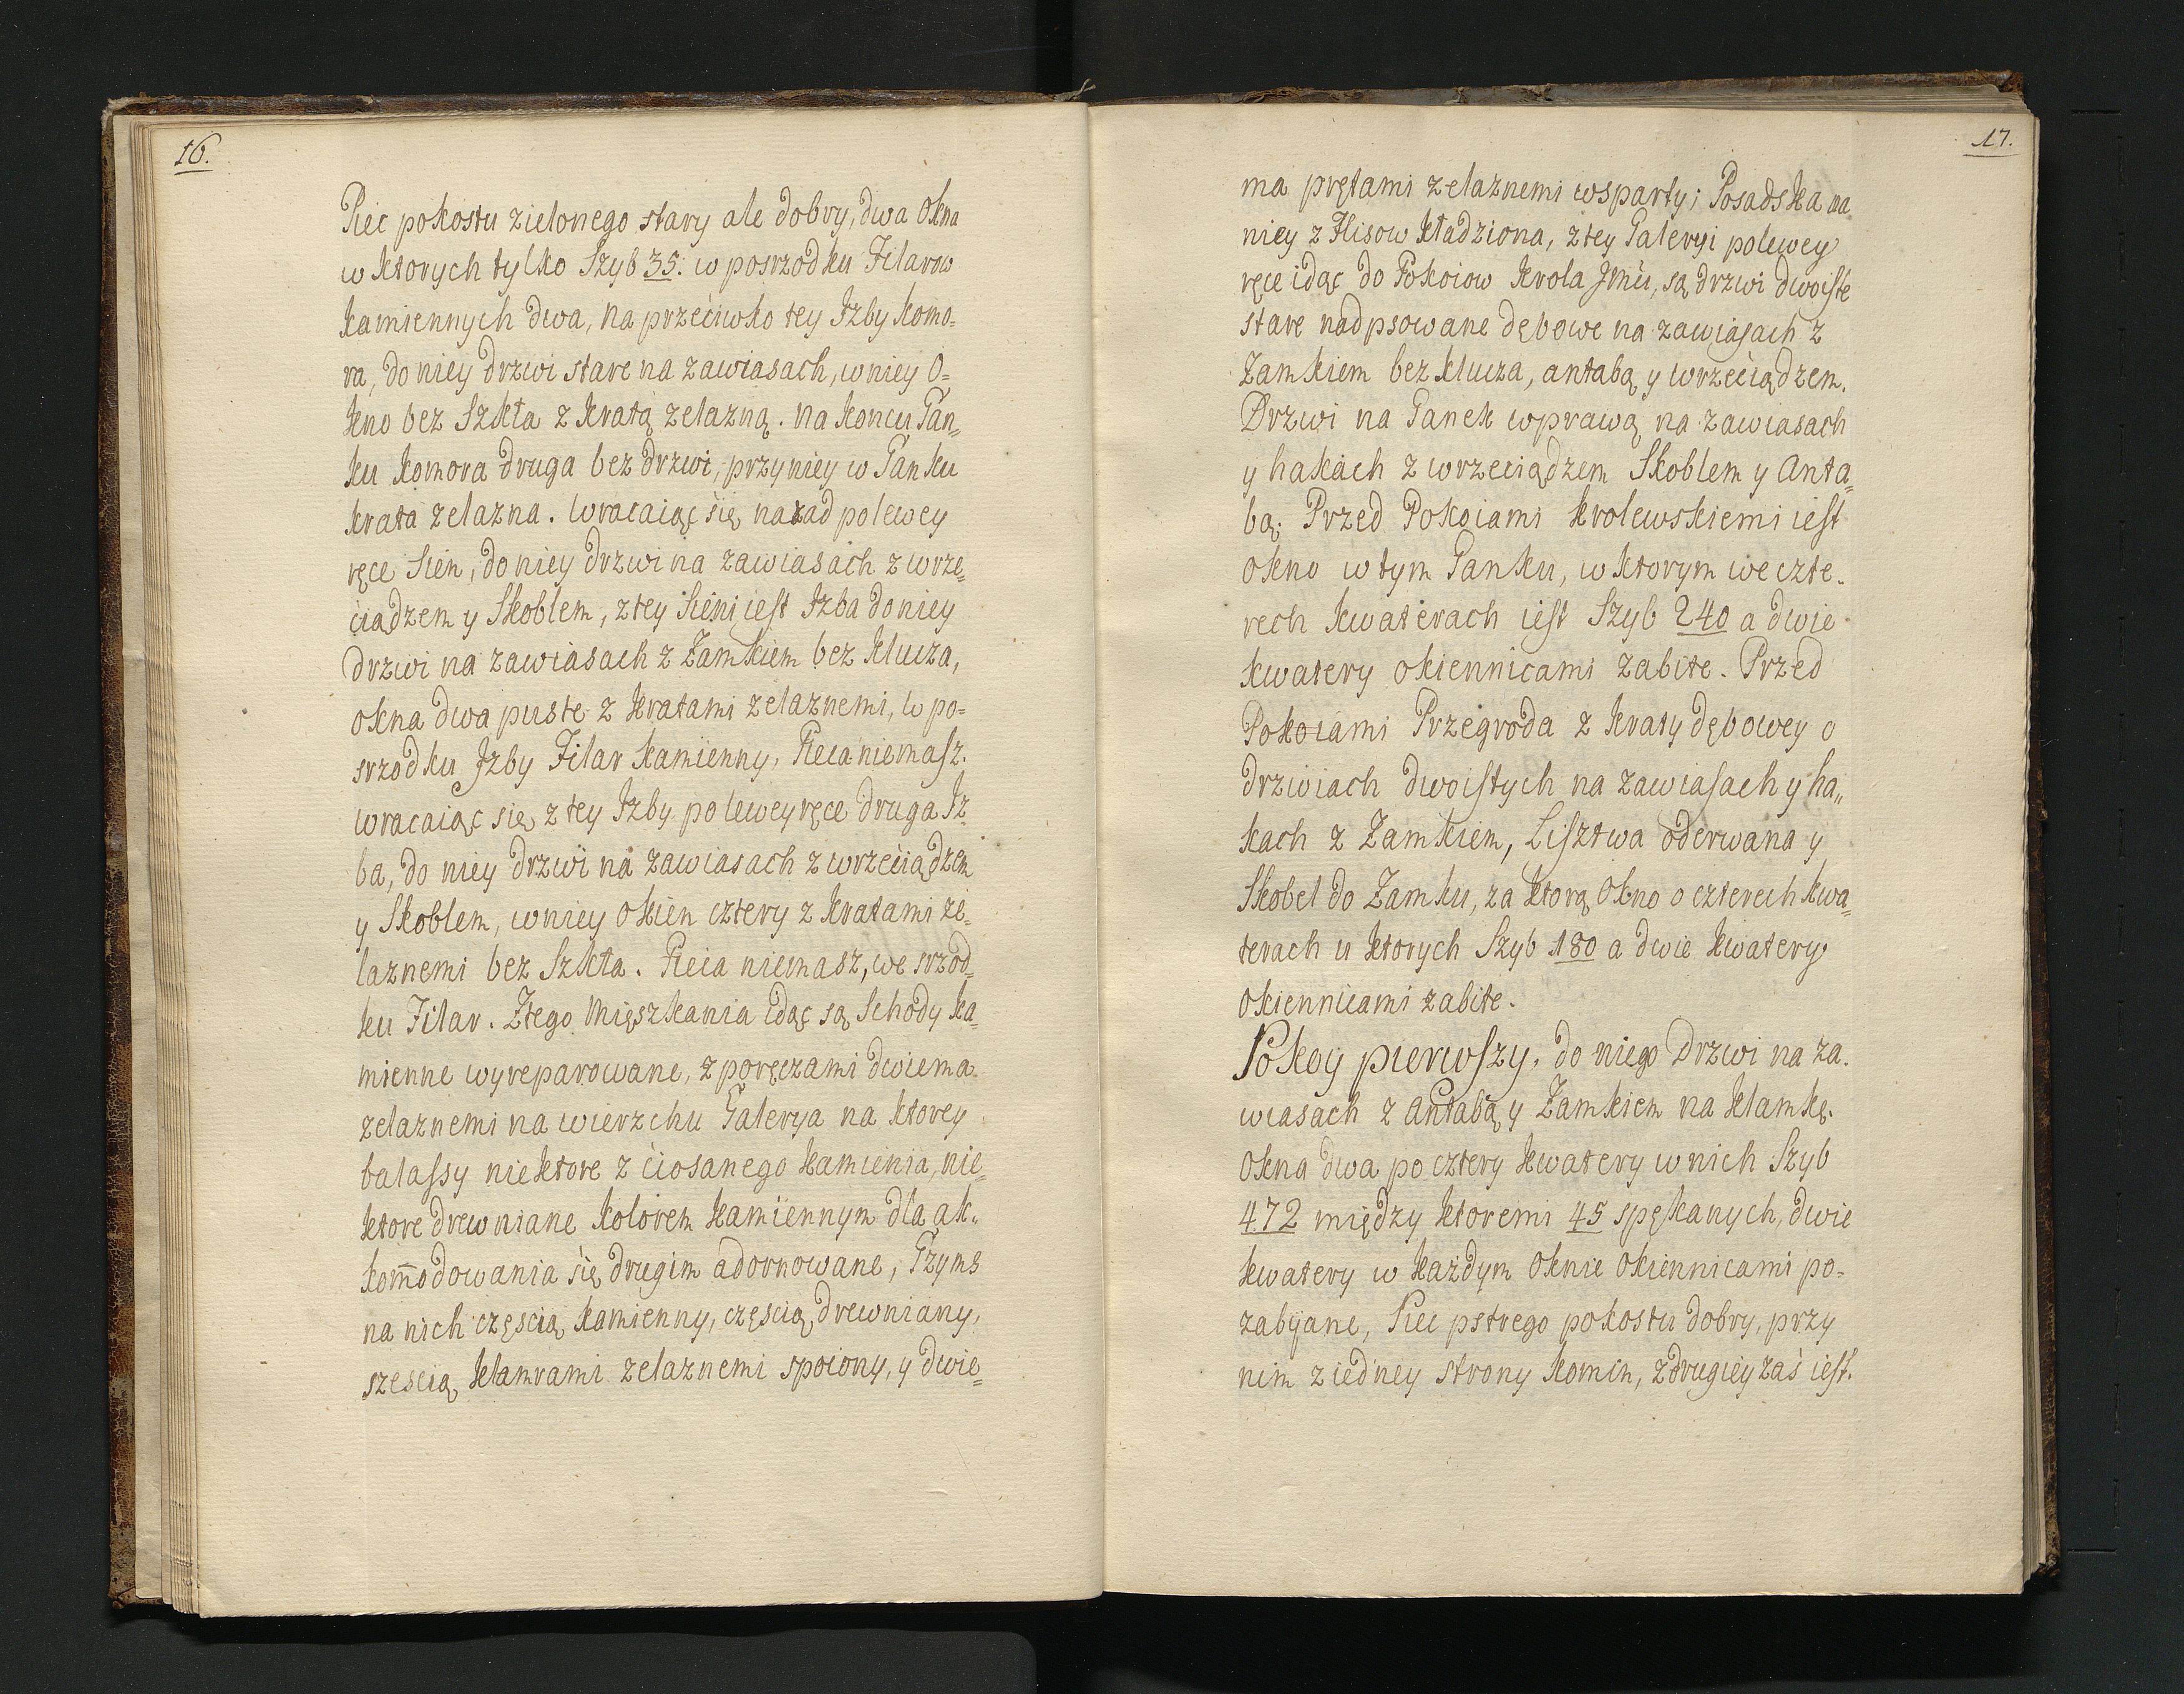 16.
Piec pokostu zielonego stary ale dobry, dwa Okna
w ktorych tylko Szyb 35. w posrzodku Filarow
kamiennych dwa, na przeciwko tey Izby komo=
ra, do niey drzwi stare na zawiasach, w niey O=
kno bez Szkła z kratą zelazną. na koncu Gan=
ku komora druga bez drzwi, przy niey w Ganku
krata zelazna. Wracaiąc się nazad po lewey
ręce Sień, do niey drzwi na zawiasach z wrze=
ciądzem y Skoblem, z tey Sieni iest Izba do niey
drzwi na zawiasach z Zamkiem bez klucza,
okna dwa puste z kratami zelaznemi, w po=
srzodku Izby Filar kamienny, Pieca niemasz.
wracaiąc się z tey Izby po lewey ręce druga Iz=
ba, do niey drzwi na zawiasach z wrzeciądzem
y Skoblem, w niey okien cztery z kratami że=
laznemi bez Szkła. Pieca niemasz, we srzod=
ku Filar. Ztego Mięszkania idąc są Schody ka=
mienne wyreparowane, z poręczami dwiema
zelaznemi na wierzchu Galerya na ktorey
balassy niektore z ciosanego kamienia, nie=
ktore drewniane kolorem kamiennym dla ak=
kom̃odowania się drugim adornowane, Gzyms
na nich częscią kamienny, częscią drewniany,
szescią klamrami zelaznemi spoiony, y dwie=
17.
ma prętami zelaznemi wsparty; Posadska na
niey z Flisow kładziona, z tey Galeryi po lewey
ręce idąc do Pokoiow Krola Jmci, są drzwi dwoiste
stare nadpsowane dębowe na zawiasach z
Zamkiem bez klucza, antabą y wrzeciądzem.
Drzwi na Ganek w prawą na zawiasach
y hakach z wrzeciądzem Skoblem y Anta=
bą. Przed Pokoiami krolewskiemi iest
okno w tym Ganku, w ktorym we czte=
rech kwaterach iest Szyb 240 a dwie
kwatery okiennicami zabite. Przed
Pokoiami Przegroda z kraty dębowey o
drzwiach dwoistych na zawiasach y ha=
kach z Zamkiem, Lisztwa oderwana y
Skobel do Zamku, za ktorą Okno o czterech kwa=
terach w ktorych Szyb 180 a dwie kwatery
okiennicami zabite.
Pokoy pierwszy, do niego Drzwi na za=
wiasach z Antabą y Zamkiem na klamkę.
Okna dwa po cztery kwatery w nich Szyb
472 między ktoremi 45 spękanych, dwie
kwatery w każdym Oknie Okiennicami po=
zabijane, Piec pstrego pokostu dobry, przy
nim z iedney strony komin, z drugiey zaś iest.